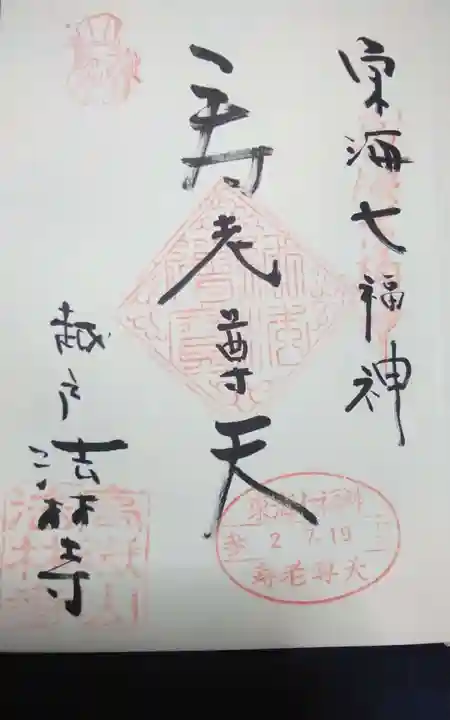 東海七福神
寿老尊天
越戸法林寺
東海七福神
2 7.19
寿老尊天